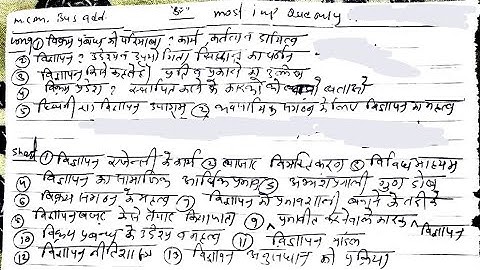 m.com. Bus add. "Be" most imp Que only..
Long ① विक्रय प्रबन्ध की परिभाषा? कार्य कर्तव्य व दायित्व
② विज्ञापन? उद्देश्य व उपयोगिता सिद्धान्त का वर्णन
③ विज्ञापन किसे कहते है? प्रकारों का उल्लेख
④ विक्रय प्रदेश? स्थापित करने के कारकों को बताओ
⑤ टिप्पणी विज्ञापन ② व्यवसायिक संगठन के लिए विज्ञापन का महत्व
Short ① विज्ञापन एजेन्सी के कार्य ② बाजार विभक्तिकरण ③ विज्ञापन माध्यम
④ विज्ञापन का सामाजिक आर्थिक प्रभाव ⑤ अभ्यंश प्रणाली गुण दोष
⑥ विक्रय संगठन के महत्व ⑦ विज्ञापन को प्रभावशाली बनाने के तरीके
⑧ विज्ञापन बजट कैसे तैयार किया जाता ⑨ प्रभावित करने वाले कारक विज्ञापन
⑩ विक्रय प्रबन्ध के उद्देश्य व महत्व ⑪ विज्ञापन मॉडल
⑫ विज्ञापन नीतिशास्त्र ⑬ विज्ञापन अनुसंधान की प्रक्रिया